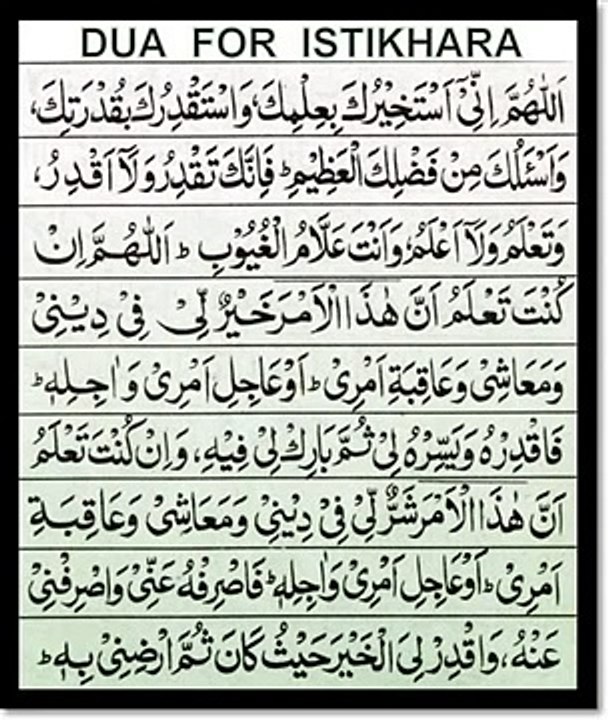 DUA FOR ISTIKHARA
اَللّٰهُمَّ اِنِّیْۤ اَسْتَخِیْرُكَ بِعِلْمِكَ، وَاَسْتَقْدِرُكَ بِقُدْرَتِكَ،
وَاَسْئَلُكَ مِنْ فَضْلِكَ الْعَظِیْمِ ؕ فَاِنَّكَ تَقْدِرُ وَلَاۤ اَقْدِرُ،
وَتَعْلَمُ وَلَاۤ اَعْلَمُ، وَاَنْتَ عَلَّامُ الْغُیُوْبِ ؕ اَللّٰهُمَّ اِنْ
كُنْتَ تَعْلَمُ اَنَّ هٰذَا الْاَمْرَ خَیْرٌ لِّیْ فِیْ دِیْنِیْ
وَمَعَاشِیْ وَعَاقِبَةِ اَمْرِیْ ؕ اَوْ عَاجِلِ اَمْرِیْ وَاٰجِلِهٖ ؕ
فَاقْدِرْهُ وَیَسِّرْهُ لِیْ ثُمَّ بَارِكْ لِیْ فِیْهِ، وَاِنْ كُنْتَ تَعْلَمُ
اَنَّ هٰذَا الْاَمْرَ شَرٌّ لِّیْ فِیْ دِیْنِیْ وَمَعَاشِیْ وَعَاقِبَةِ
اَمْرِیْ ؕ اَوْ عَاجِلِ اَمْرِیْ وَاٰجِلِهٖ ؕ فَاصْرِفْهُ عَنِّیْ وَاصْرِفْنِیْ
عَنْهُ، وَاقْدِرْ لِیَ الْخَیْرَ حَیْثُ كَانَ ثُمَّ ارْضِنِیْ بِهٖ ؕ